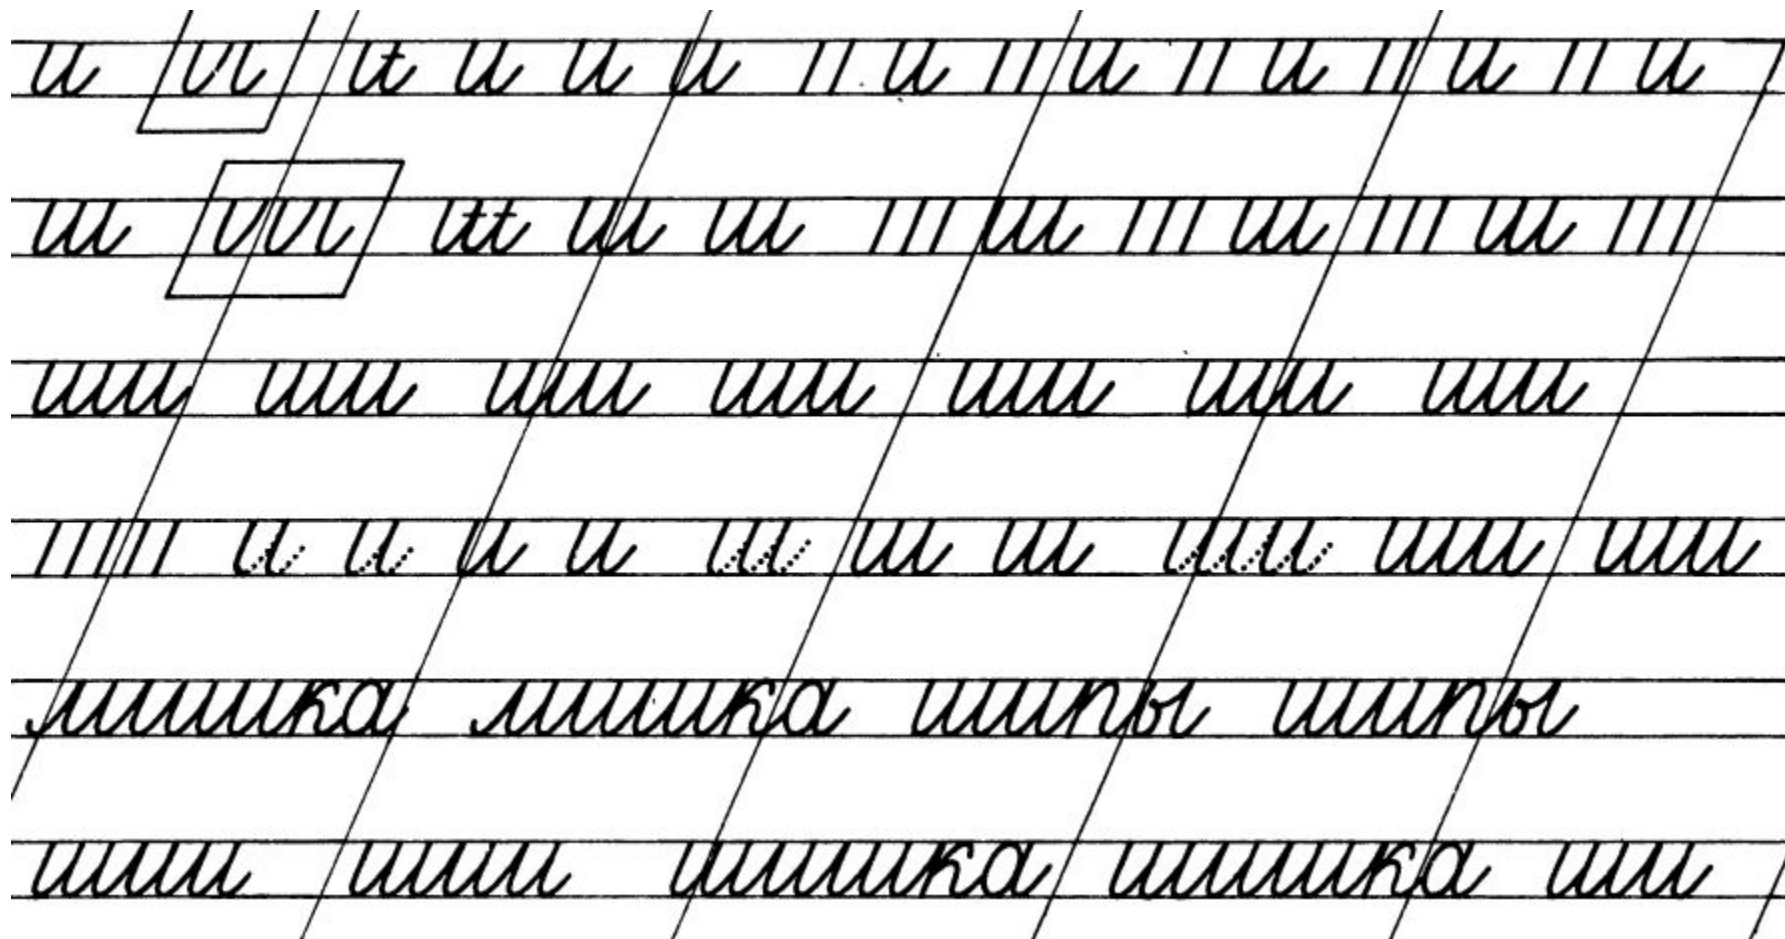 и и и и и и и и и и и
ш ш ш ш ш ш ш ш
ши ши ши ши ши ши ши
и и и и ш ш ш ши ши ши
мишка мишка шипы шипы
шишка шишка ши